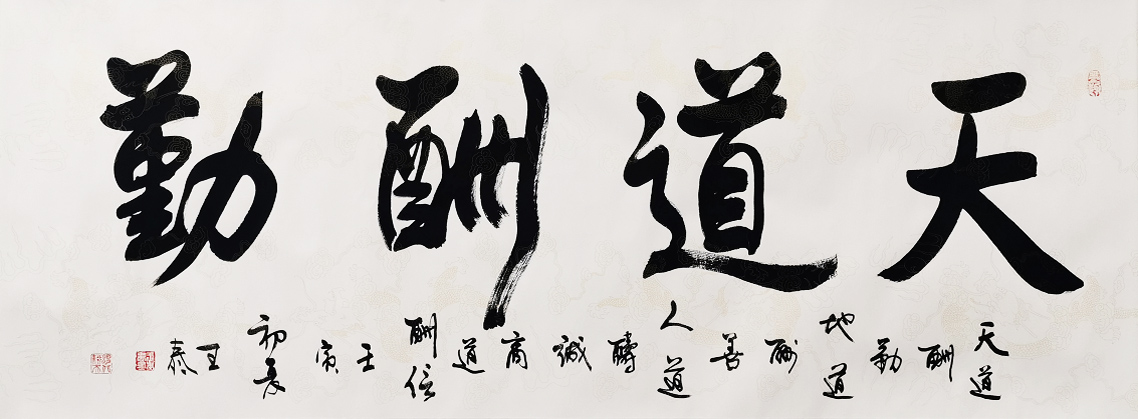 天道酬勤
天道酬勤地道酬善人道醻誠商道酬信壬寅初夏王泰